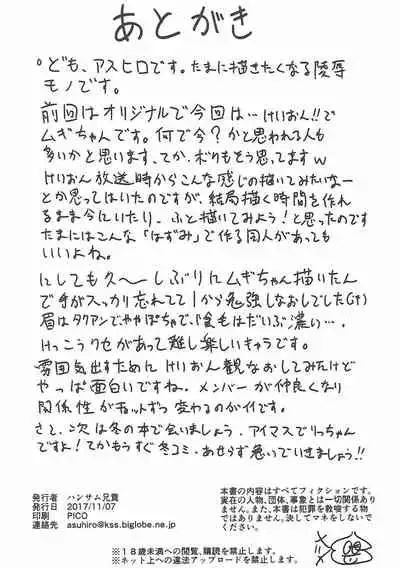 あとがき
ども、アスヒロです。たまに描きたくなる陵辱
モノです。
前回はオリジナルで今回は…けいおん!!で
ムギちゃんです。何で今?かと思われる人も
多いかと思います、てか、ボクもそう思ってますw
けいおん放送時からこんな感じの描いてみたいなー
とか思ってはいたのですが、結局描く時間を作れ
るまま今にいたり、ふと描いてみよう!と思ったのです
たまにはこんな「はずみ」で作る同人があっても
いいよね。
にしても久〜しぶりにムギちゃん描いたん
で手がスッカリ忘れてて1から勉強しなおしでした
眉はタクアンでややぽちゃで、陰毛はだいぶ濃い…、
けっこうクセがあって難し楽しいキャラです。
雰囲気出すために けいおん観なおしてみたけど
やっぱ面白いですね。メンバーが仲良くなり
関係性がチョットずつ変わるのがイイです。
さて、次は冬の本で会いましょう。アイマスでりっちゃん
ですよ!てかもうすぐ冬コミ、あせらず急いでいきましょう!!
発行者 ハンサム兄貴
発行日 2017/11/07
印刷 PICO
連絡先 asuhiro@kss.biglobe.ne.jp
本書の内容はすべてフィクションです。
実在の人物、団体、事象とは一切関係あり
ません。また、本書は犯罪を教唆する物
ではありません。決してマネをしないでく
ださい。
※18歳未満への閲覧、購読を禁止します。
※ネット上への違法アップロードを禁止します。